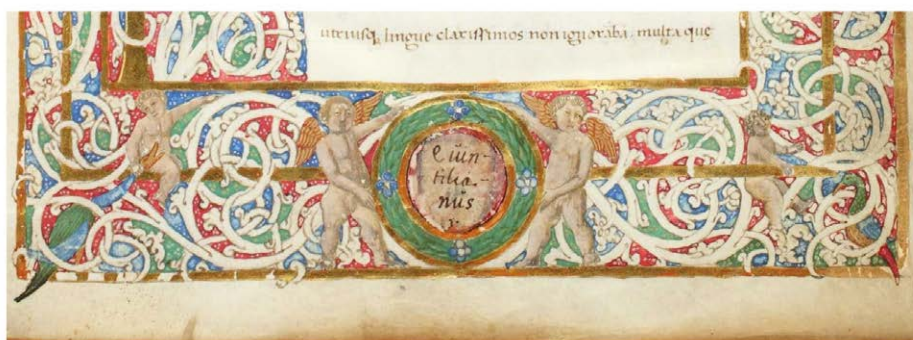 utriusq; lingue clarissimos non ignorabā. multa que
Quin-
tilia-
nus